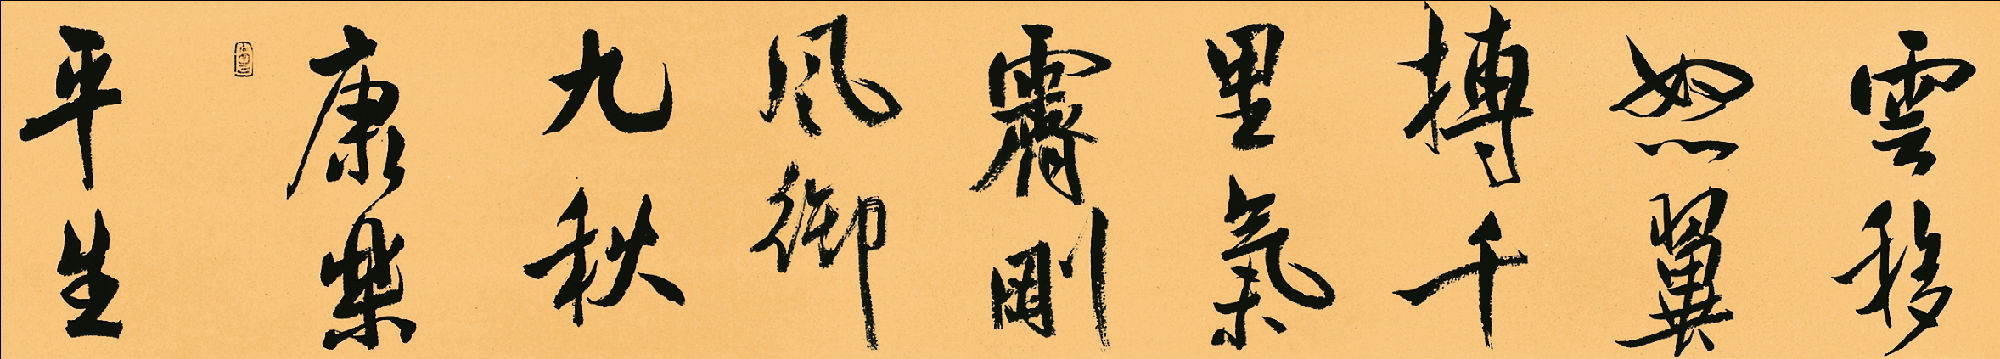 雲移
怒翼
搏千
里氣
霽剛
風御
九秋
康樂
平生